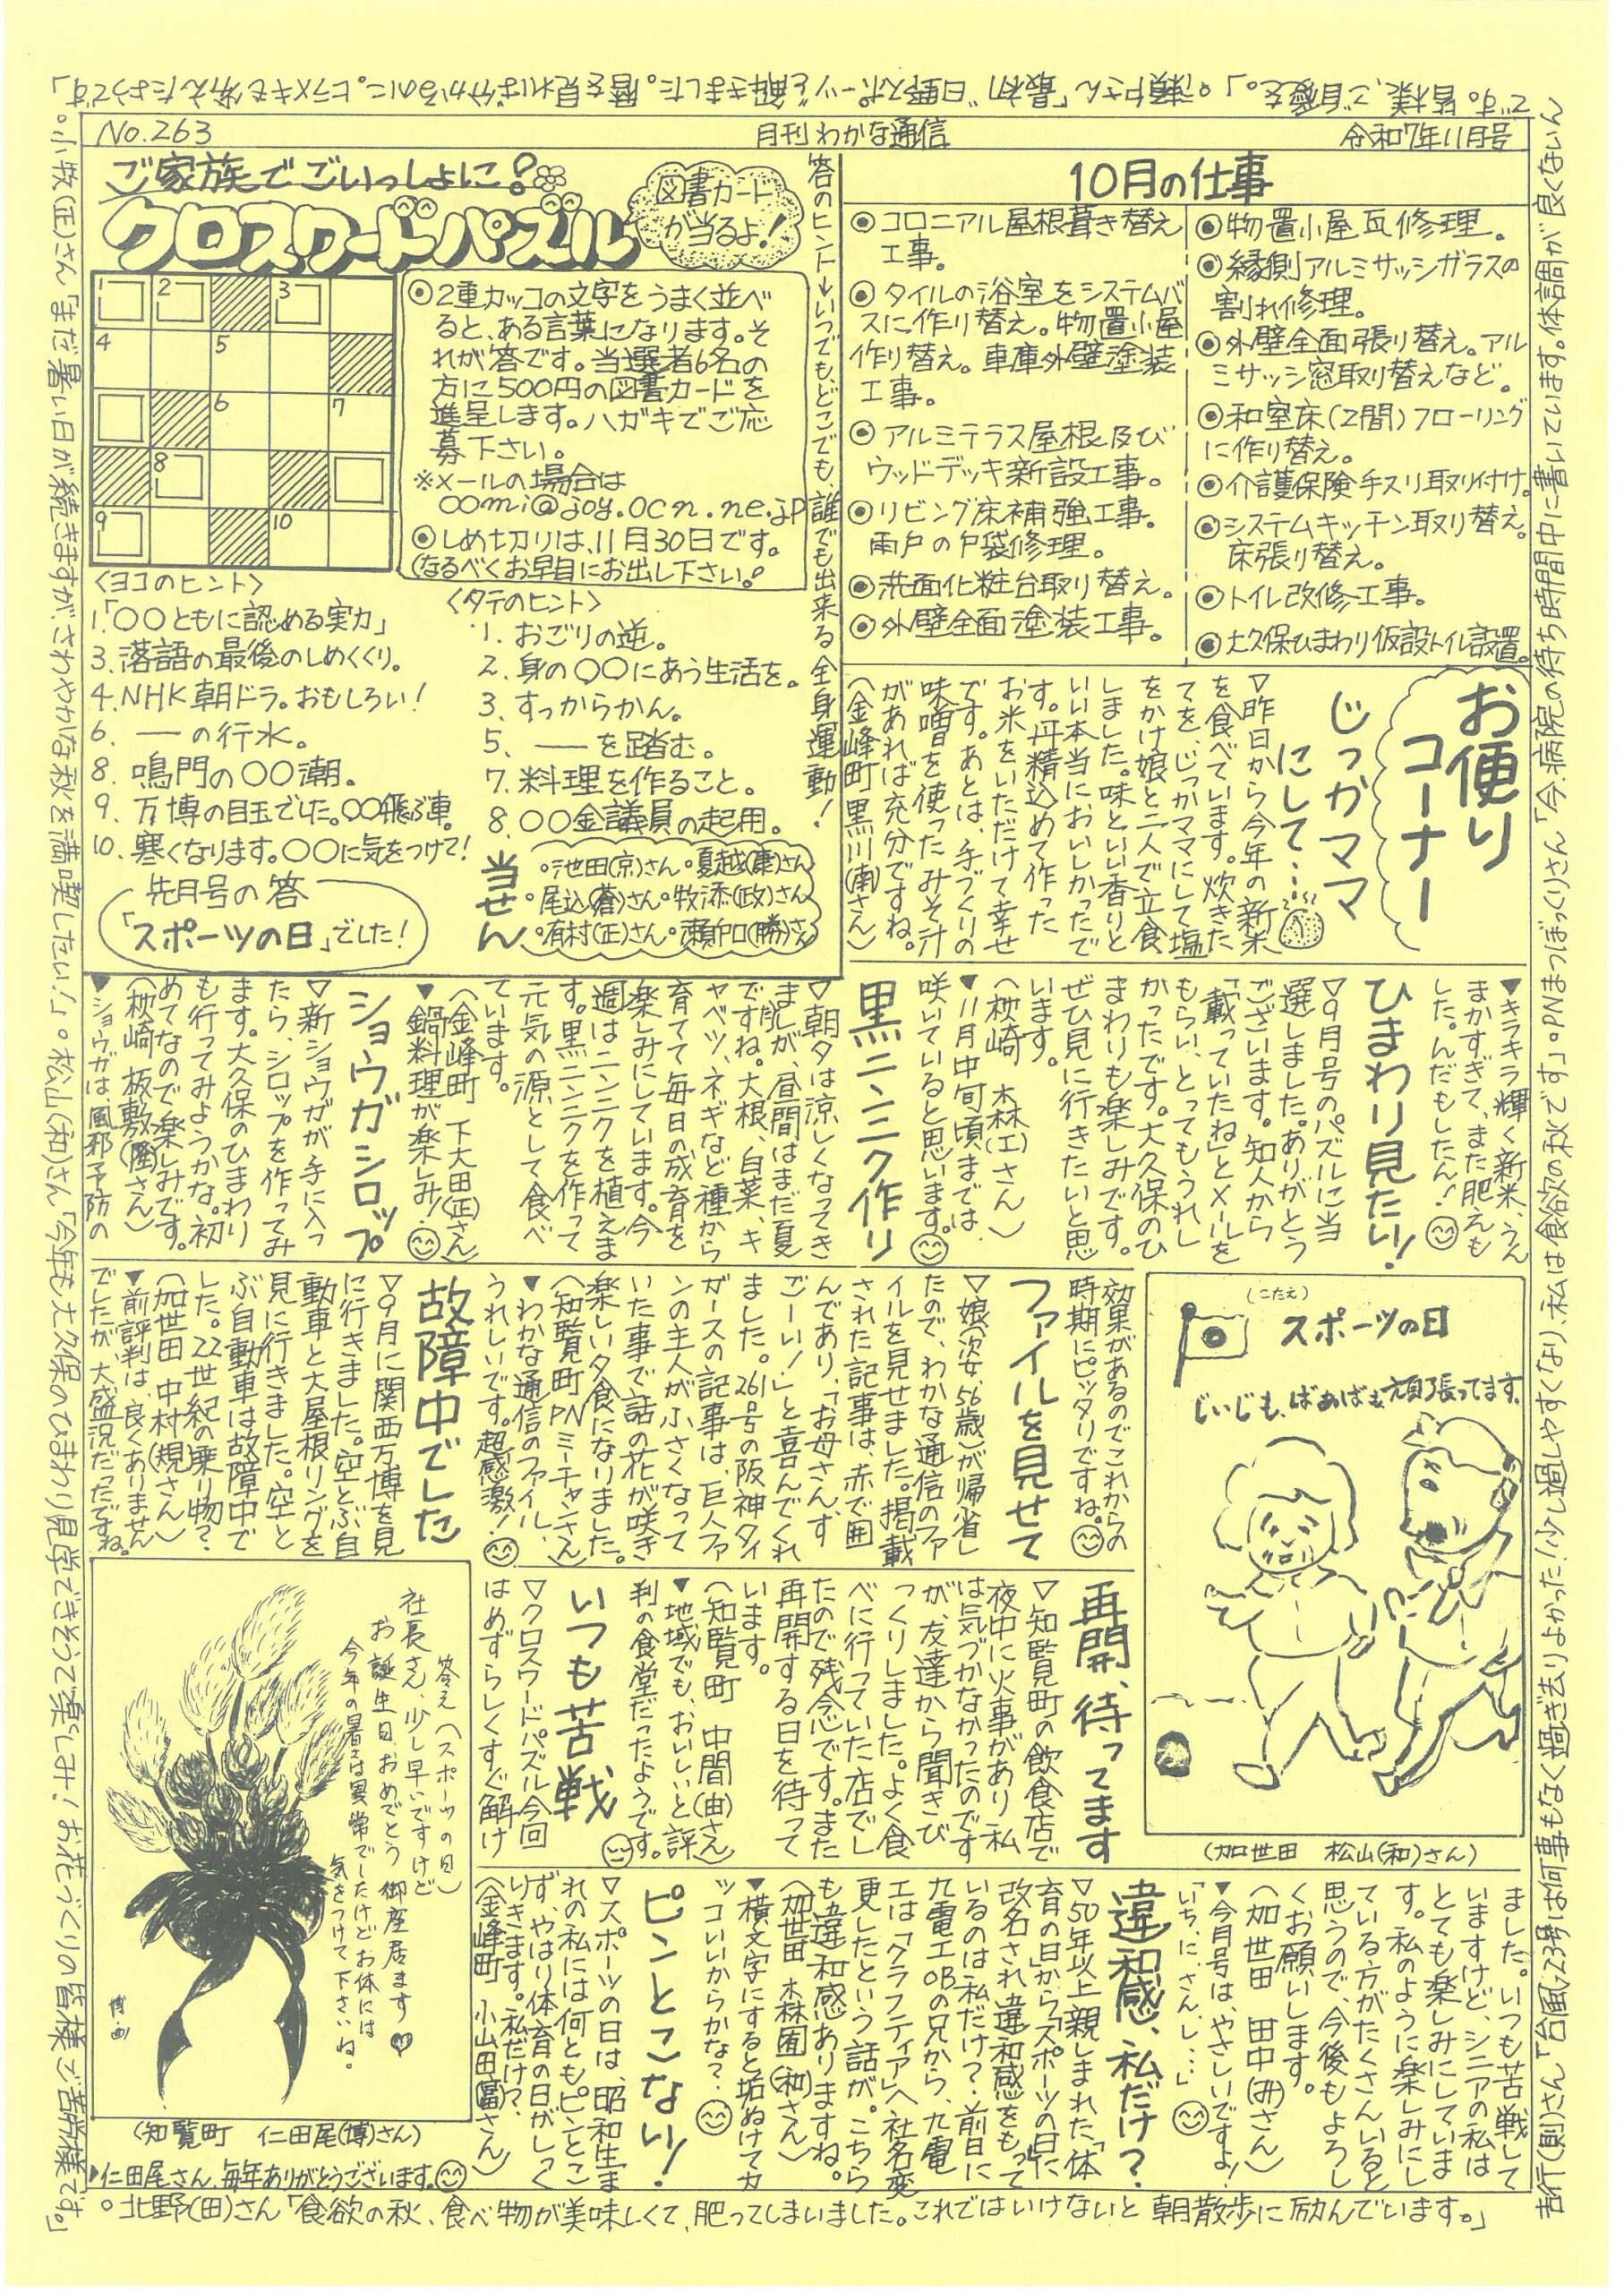 No.263
月刊わかな通信
令和7年11月号
ご家族でごいっしょに!
クロスワードパズル
図書カード
が当るよ!
1
2
3
4
5
6
7
8
9
10
◎2重カッコの文字をうまく並べ
ると、ある言葉になります。そ
れが答です。当選者6名の
方に500円の図書カードを
進呈します。ハガキでご応
募下さい。
※メールの場合は
oomi@joy.ocn.ne.jp
◎しめ切りは、11月30日です。
(なるべくお早目にお出し下さい!)
答のヒント→いつでもどこでも、誰でも出来る全身運動!
<ヨコのヒント>
1.「〇〇ともに認める実力」
3.落語の最後のしめくくり。
4.NHK朝ドラ。おもしろい!
6. ―の行水。
8. 鳴門の〇〇潮。
9. 万博の目玉でした。〇〇飛ぶ車。
10. 寒くなります。〇〇に気をつけて!
<タテのヒント>
1. おごりの逆。
2. 身の〇〇にあう生活を。
3. すっからかん。
5. ―を踏む。
7. 料理を作ること。
8. 〇〇金議員の起用。
先月号の答
「スポーツの日」でした!
当せん
・池田(京)さん・夏越(康)さん
・尾込(蒼)さん・牧添(政)さん
・有村(正)さん・瀬戸口(勝)さん
10月の仕事
◎コロニアル屋根葺き替え
工事。
◎タイルの浴室をシステムバ
スに作り替え。物置小屋
作り替え。車庫外壁塗装
工事。
◎アルミテラス屋根及び
ウッドデッキ新設工事。
◎リビング床補強工事。
雨戸の戸袋修理。
◎洗面化粧台取り替え。
◎外壁全面塗装工事。
◎物置小屋瓦修理。
◎縁側アルミサッシガラスの
割れ修理。
◎外壁全面張り替え。アル
ミサッシ窓取り替えなど。
◎和室床(2間)フローリング
に作り替え。
◎介護保険手スリ取り付け。
◎システムキッチン取り替え。
床張り替え。
◎トイレ改修工事。
◎大久保ひまわり仮設トイレ設置。
お便り
コーナー
じっかママ
にして…
▽昨日から今年の新米
を食べています。炊きた
てを、じっかママにして塩
をかけ娘と二人で立食
しました。味といい香りと
いい本当においしかったで
す。丹精込めて作った
お米をいただけて幸せ
です。あとは、手づくりの
味噌を使ったみそ汁
があれば充分ですね。
(金峰町 黒川(南)さん)
▼キラキラ輝く新米、うん
まかすぎて、また肥えも
した。んだもしたん!
ひまわり見たい!
▽9月号のパズルに当
選しました。ありがとう
ございます。知人から
「載っていたね」とメールを
もらい、とってもうれし
かったです。大久保のひ
まわりも楽しみです。
ぜひ見に行きたいと思
います。
(枕崎 森(エ)さん)
▼11月中旬頃までは、
咲いていると思います。
黒ニンニク作り
▽朝夕は涼しくなってき
ましが、昼間はまだ夏
ですね。大根、白菜、キ
ャベツ、ネギなど種から
育てて毎日の成育を
楽しみにしています。今
週はニンニクを植えま
す。黒ニンニクを作って
元気の源として食べ
ています。
(金峰町 下大田(正)さん)
▼鍋料理が楽しみ!
ショウガシロップ
▽新ショウガが手に入っ
たら、シロップを作ってみ
ます。大久保のひまわり
も行ってみようかな。初
めてなので楽しみです。
(枕崎 板敷(隆)さん)
▼ショウガは風邪予防の
効果があるのでこれからの
時期にピッタリですね。
ファイルを見せて
▽娘(次女、56歳)が帰省し
たので、わかな通信のファ
イルを見せました。掲載
された記事は、赤で囲
んであり、「お母さん、す
ごーい!」と喜んでくれ
ました。261号の阪神タイ
ガースの記事は、巨人ファ
ンの主人が小さくなって
いた事で話の花が咲き
楽しい夕食になりました。
(知覧町 PNミーチャンさん)
▼わかな通信のファイル、
うれしいです。超感激!
故障中でした
▽9月に関西万博を見
に行きました。空とぶ自
動車と大屋根リングを
見に行きました。空と
ぶ自動車は故障中で
した。22世紀の乗り物?
(加世田 中村(規)さん)
▼前評判は、良くありません
でしたが、大盛況だったですね。
(こたえ)
スポーツの日
じいじも、ばあばも頑張ってます。
(加世田 松山(和)さん)
再開、待ってます
▽知覧町の飲食店で
夜中に火事があり私
は気づかなかったのです
が、友達から聞きび
っくりしました。よく食
べに行っていた店でし
たので残念です。また
再開する日を待って
います。
(知覧町 中間(由)さん)
▼地域でも、おいしいと評
判の食堂だったようです。
いつも苦戦
▽クロスワードパズル今回
はめずらしくすぐ解け
ました。いつも苦戦して
いますけど、シニアの私は
とても楽しみにしていま
す。私のように楽しみにし
ている方がたくさんいると
思うので、今後もよろし
くお願いします。
(加世田 田中(み)さん)
▼今月号は、やさしいですよ!
「いち、に、さん、し…」
違和感、私だけ?
▽50年以上親しまれた「体
育の日」から「スポーツの日」に
改名され違和感をもって
いるのは私だけ?前日に
九電工OBの兄から、九電
工は「クラフティア」へ社名変
更したという話が。こちら
も違和感ありますね。
(加世田 森園(和)さん)
▼横文字にすると垢ぬけてカ
ッコいいからかな?
ピンとこない!
▽スポーツの日は、昭和生ま
れの私には何ともピンとこ
ず、やはり体育の日がしっく
りきます。私だけ?
(金峰町 小山田(冨)さん)
答え(スポーツの日)
社長さん、少し早いですけど
お誕生日おめでとう御座居ます
今年の暑さは異常でしたけどお体には
気をつけて下さいね。
博・画
(知覧町 仁田尾(博)さん)
▶仁田尾さん、毎年ありがとうございます。
。北野(田)さん「食欲の秋、食べ物が美味しくて、肥ってしまいました。これではいけないと朝散歩に励んでいます。」
。小牧(正)さん「まだ暑い日が続きますが、さわやかな秋を満喫したい!」。松山(和)さん「今年も大久保のひまわり見学できそうで楽しみ!お花づくりの皆様ご苦労様です。」
さん「台風23号は何事もなく過ぎ去りよかった!少し過しやすくなり、私は食欲の秋です」。PNまつぼっくりさん「今、病院の待ち時間中に書いています。体調が良くないん
です。皆様、ご自愛を。」。瀬戸口さん「最初”日野スポーツ”と解きました。暦を見れば分かるのに。ヒラメキも冴えたようです」